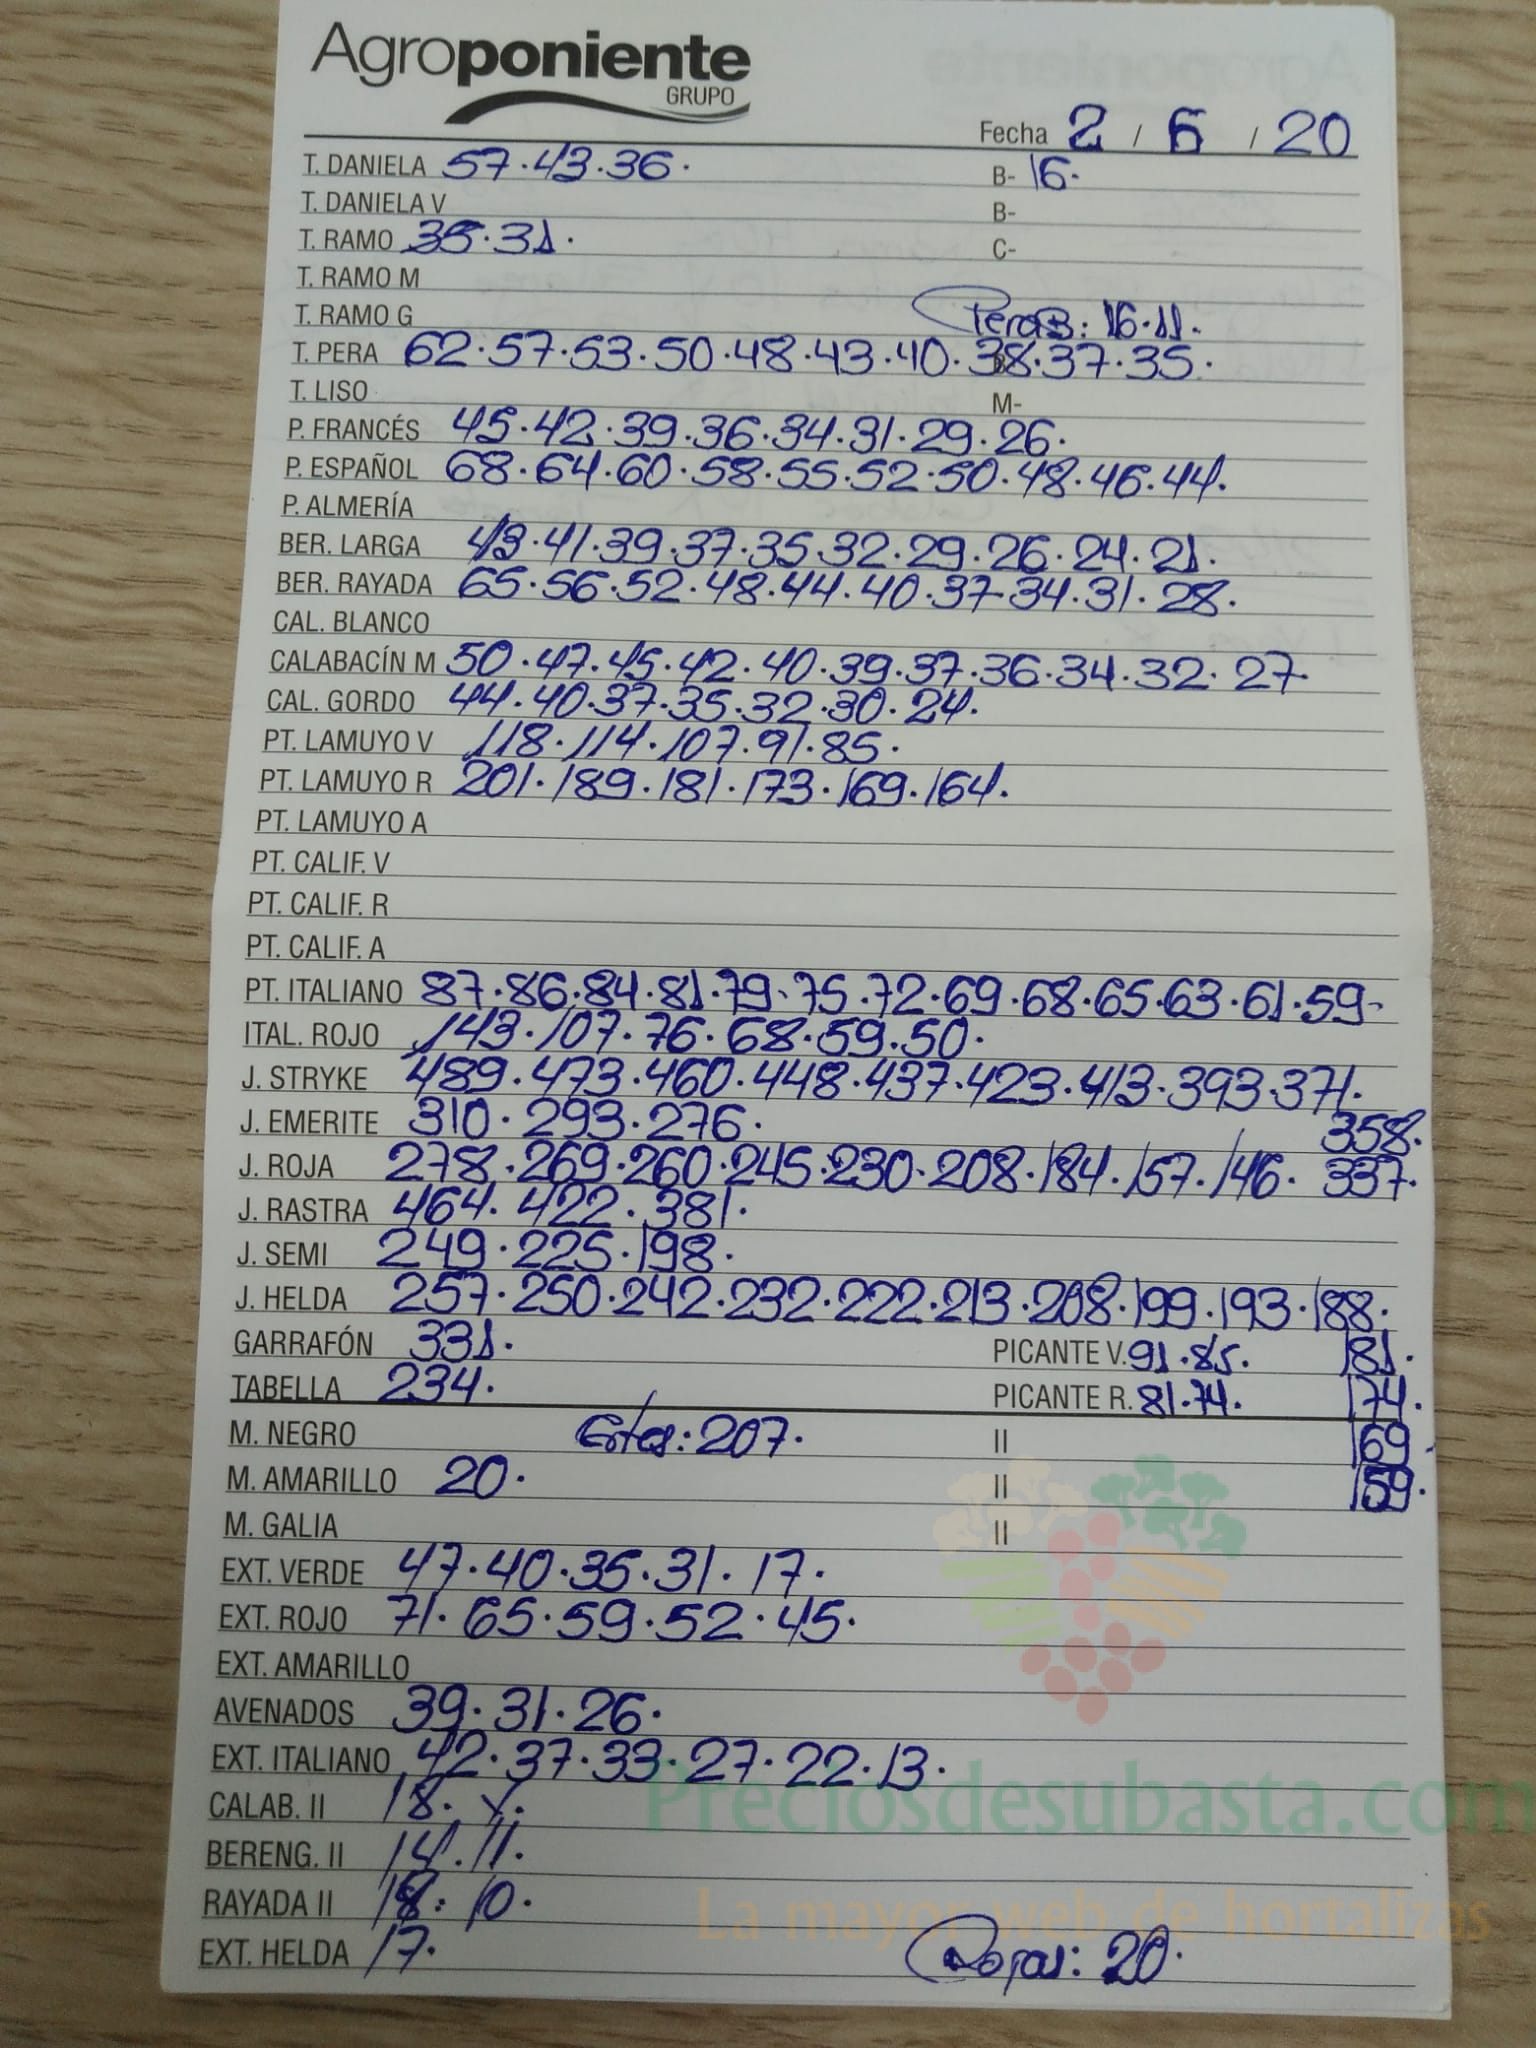 Agroponiente
GRUPO
Fecha 2 / 6 / 20
T. DANIELA 57.43.36. B- 16.
T. DANIELA V B-
T. RAMO 35.31. C-
T. RAMO M
T. RAMO G PeraB: 16.11.
T. PERA 62.57.53.50.48.43.40.38.37.35.
T. LISO M-
P. FRANCÉS 45.42.39.36.34.31.29.26.
P. ESPAÑOL 68.64.60.58.55.52.50.48.46.44.
P. ALMERÍA
BER. LARGA 43.41.39.37.35.32.29.26.24.21.
BER. RAYADA 65.56.52.48.44.40.37.34.31.28.
CAL. BLANCO
CALABACÍN M 50.47.45.42.40.39.37.36.34.32.27.
CAL. GORDO 44.40.37.35.32.30.24.
PT. LAMUYO V 118.114.107.91.85.
PT. LAMUYO R 201.189.181.173.169.164.
PT. LAMUYO A
PT. CALIF. V
PT. CALIF. R
PT. CALIF. A
PT. ITALIANO 87.86.84.81.79.75.72.69.68.65.63.61.59.
ITAL. ROJO 143.107.76.68.59.50.
J. STRYKE 489.473.460.448.437.423.413.393.371.
J. EMERITE 310.293.276. 358.
J. ROJA 278.269.260.245.230.208.184.157.146. 337.
J. RASTRA 464.422.381.
J. SEMI 249.225.198.
J. HELDA 257.250.242.232.222.213.208.199.193.188.
GARRAFÓN 331. PICANTE V. 91.85. 181.
TABELLA 234. PICANTE R. 81.74. 174.
M. NEGRO : 207. II 169.
M. AMARILLO 20. II 159.
M. GALIA II
EXT. VERDE 47.40.35.31.17.
EXT. ROJO 71.65.59.52.45.
EXT. AMARILLO
AVENADOS 39.31.26.
EXT. ITALIANO 42.37.33.27.22.13.
Preciosdesubasta.com
CALAB. II 18.
BERENG. II 14.11.
RAYADA II 18. 10.
La mayor web de hortalizas
EXT. HELDA 17. Rojas: 20.